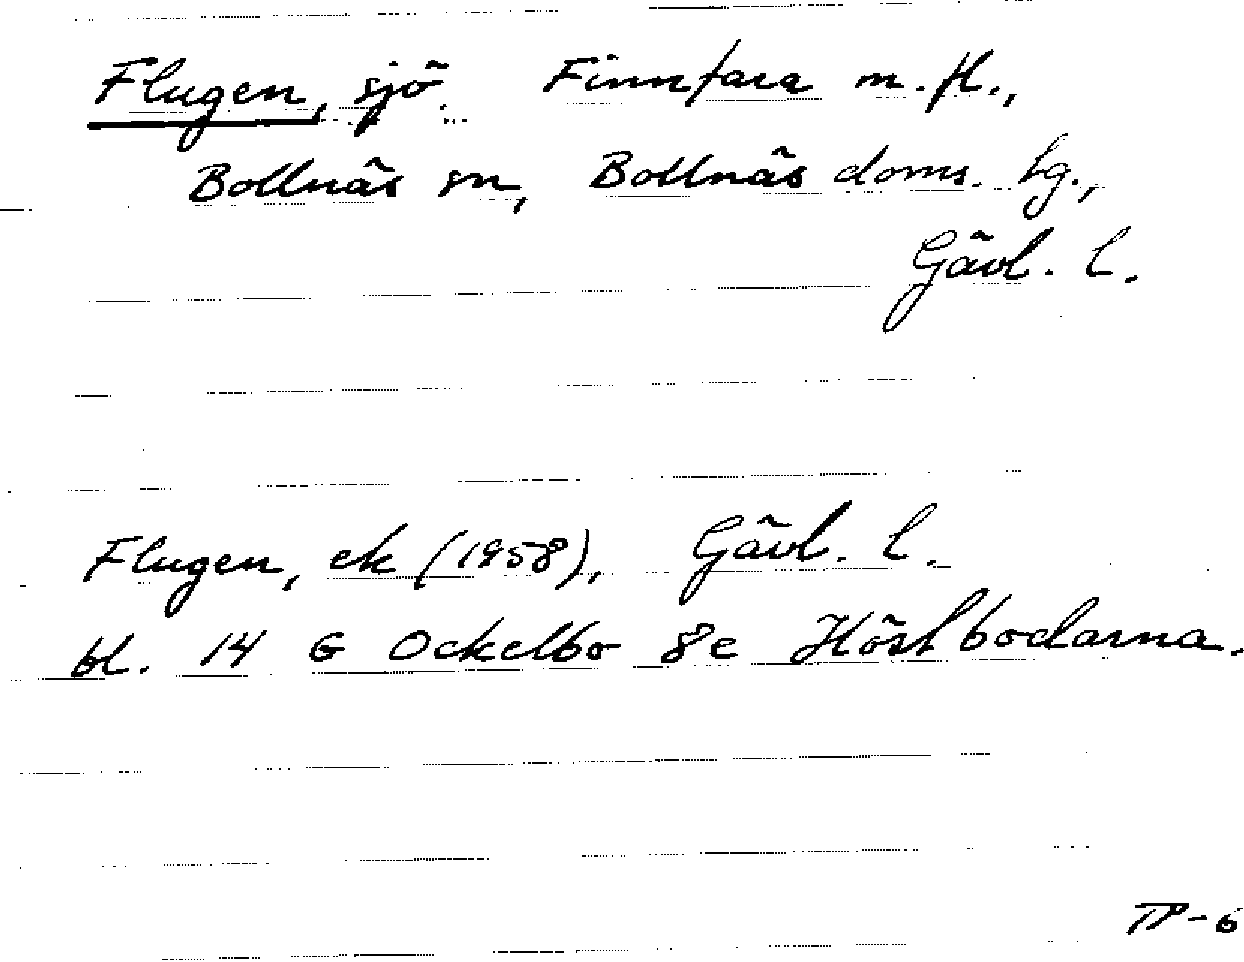 Flugen, sjö. Finnfara m.fl.,
Bollnäs sn, Bollnäs doms. hg.,
Gävl. l.
Flugen, ek (1958), Gävl. l.
bl. 14 G Ockelbo 8e Höstbodarna.
TP-6